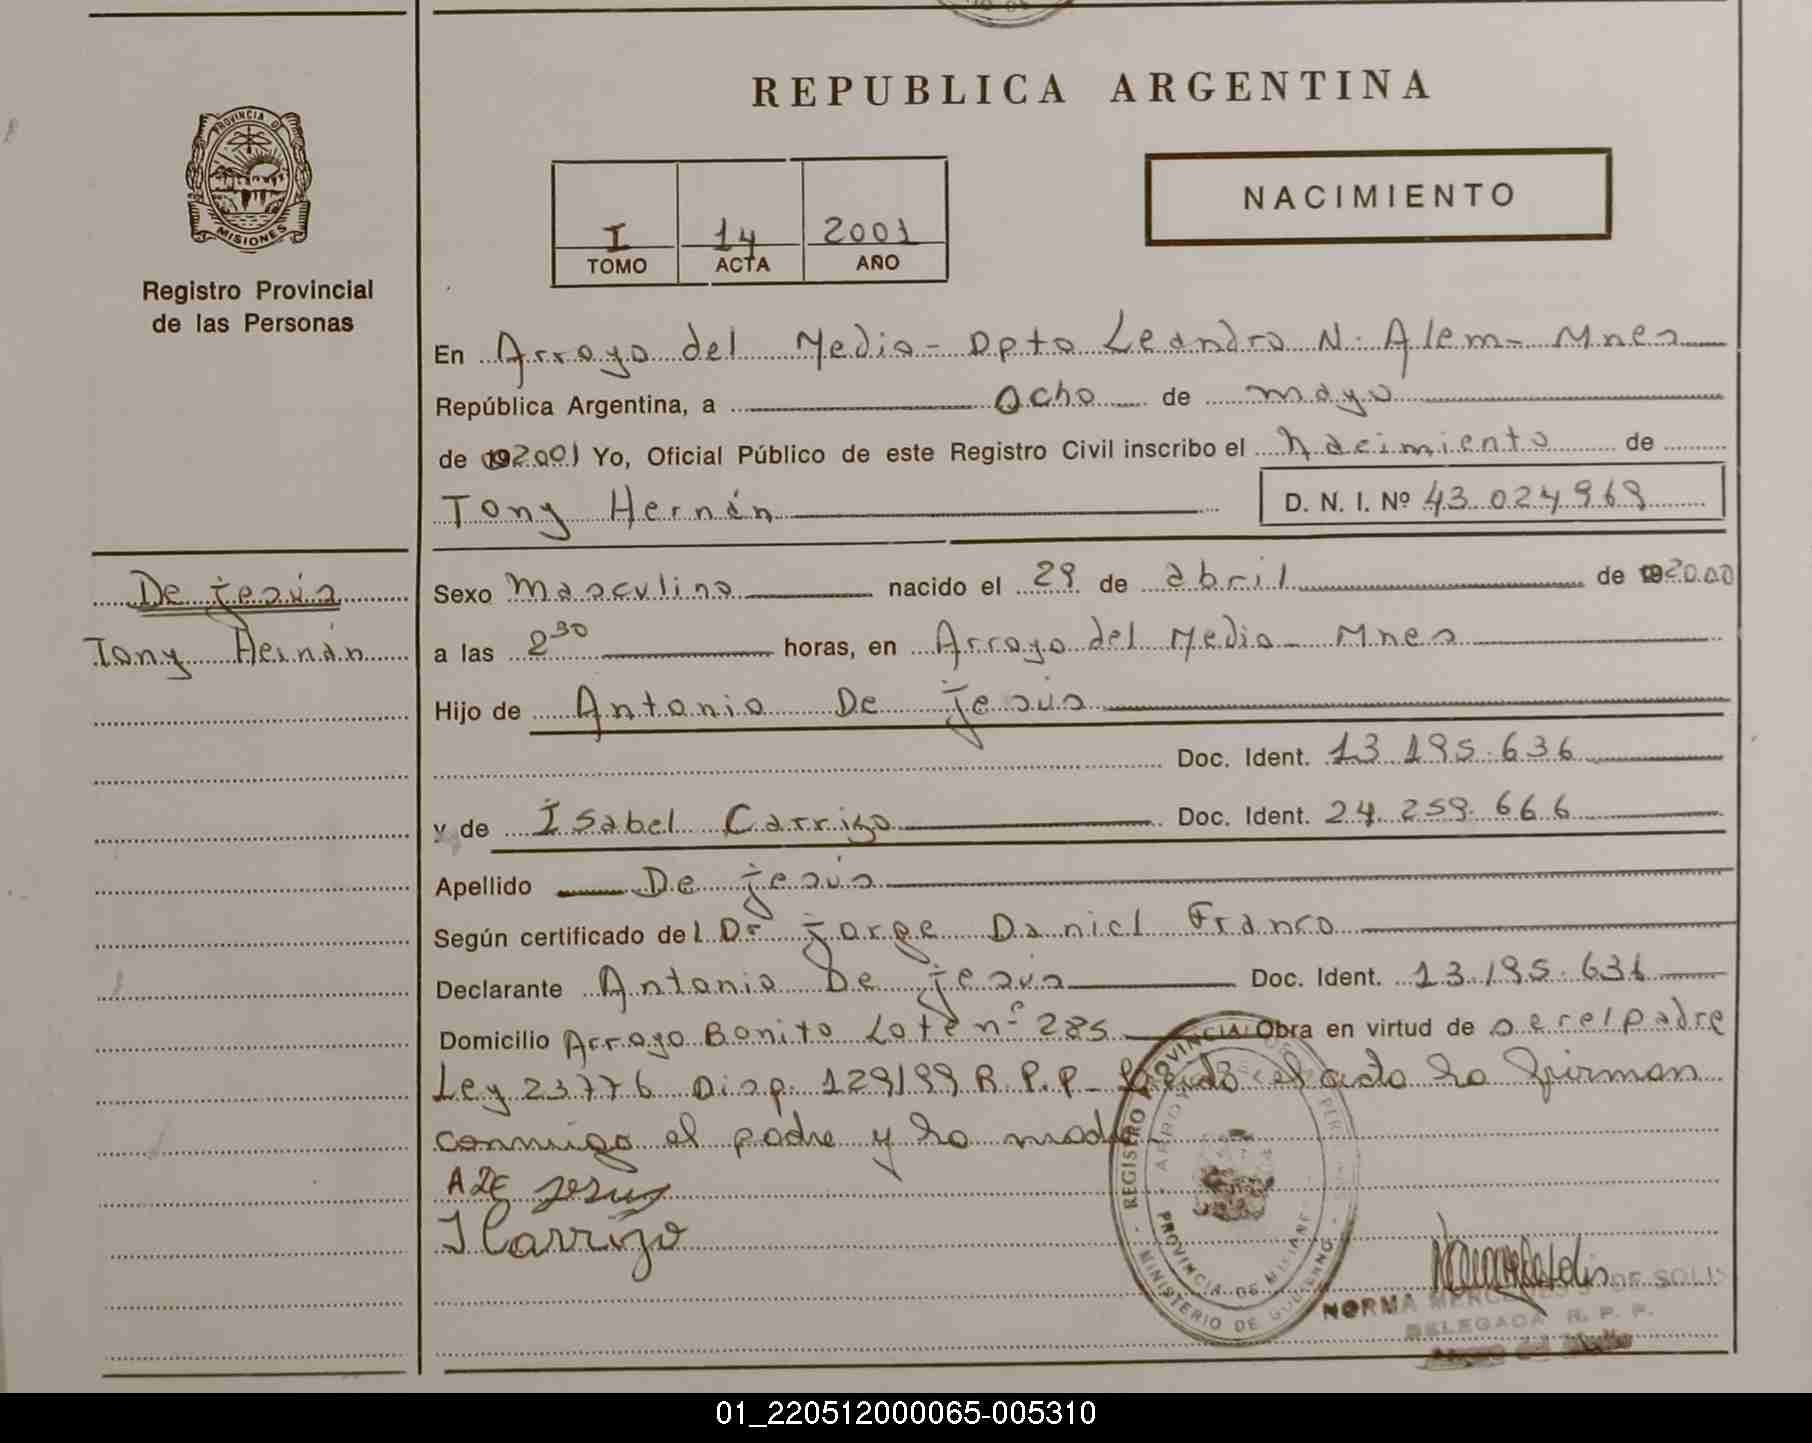 REPUBLICA ARGENTINA
PROVINCIA DE
MISIONES
Registro Provincial
de las Personas
I 14 2001
TOMO ACTA AÑO
NACIMIENTO
En Arroyo del Medio - Dpto Leandro N. Alem - Mnes
República Argentina, a Ocho de mayo
de 192001 Yo, Oficial Público de este Registro Civil inscribo el Nacimiento de
Tony Hernán D. N. I. Nº 43.024.969
De Jesús
Tony Hernán
Sexo Masculino nacido el 29 de abril de 192000
a las 2 30 horas, en Arroyo del Medio - Mnes
Hijo de Antonio De Jesús
Doc. Ident. 13.195.636
y de Isabel Carrizo Doc. Ident. 24.259.666
Apellido De Jesús
Según certificado del Dr Jorge Daniel Franco
Declarante Antonio De Jesús Doc. Ident. 13.195.636
Domicilio Arroyo Bonito Lote nº 285 Obra en virtud de ser el padre
Ley 23776 Disp. 129/99 R.P.P. - Leído el acta la firman
conmigo el padre y la madre
A De Jesus
I Carrizo
REGISTRO PROVINCIAL DE LAS PERSONAS
PROVINCIA DE MISIONES
MINISTERIO DE GOBIERNO
NORMA MERCEDES S. DE SOLIS
DELEGADA R. P. P.
Arroyo del Medio
01_220512000065-005310